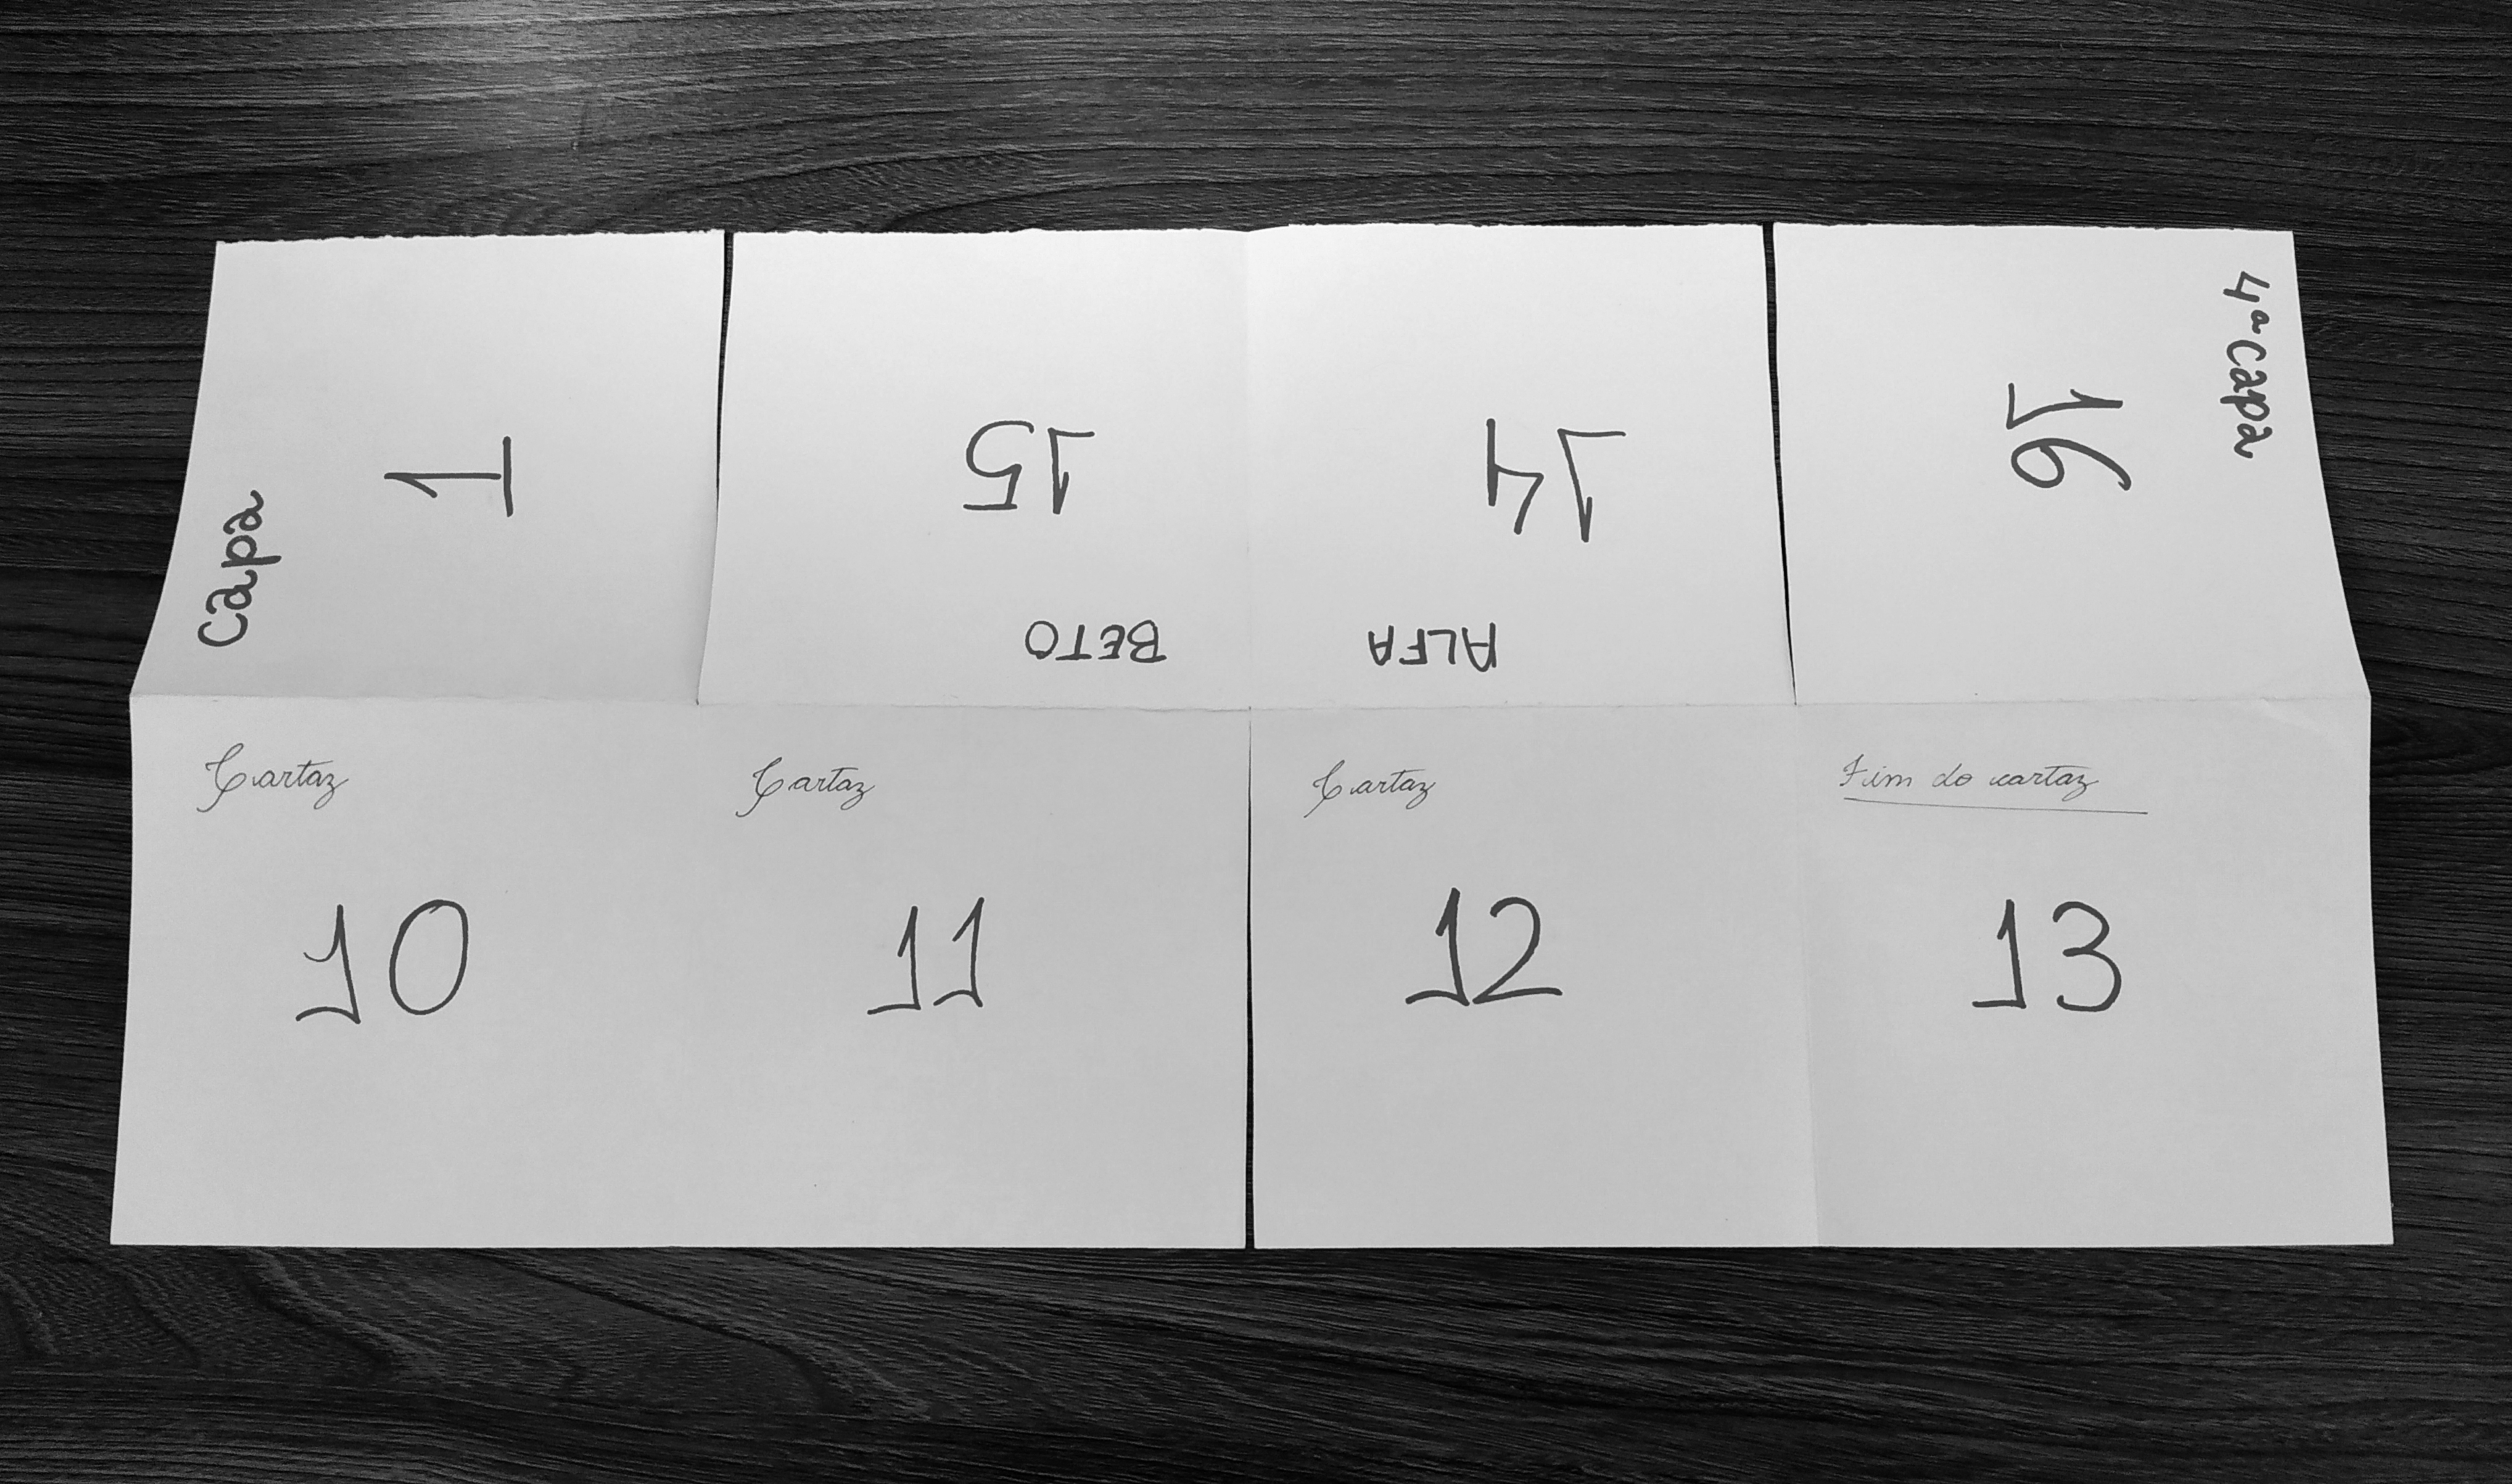 Capa
1
15
BETO
14
ALFA
4ª capa
16
Cartaz
10
Cartaz
11
Cartaz
12
Fim do cartaz
13